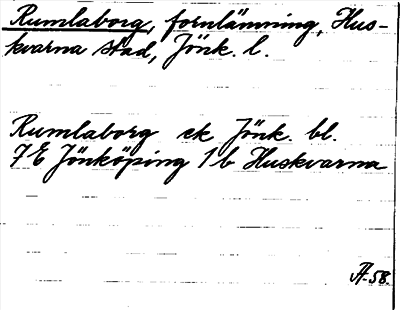 Rumlaborg, fornlämning, Hus-
kvarna stad, Jönk. l.
Rumlaborg ek Jönk. bl.
7 E Jönköping 1 b Huskvarna
Å-58.